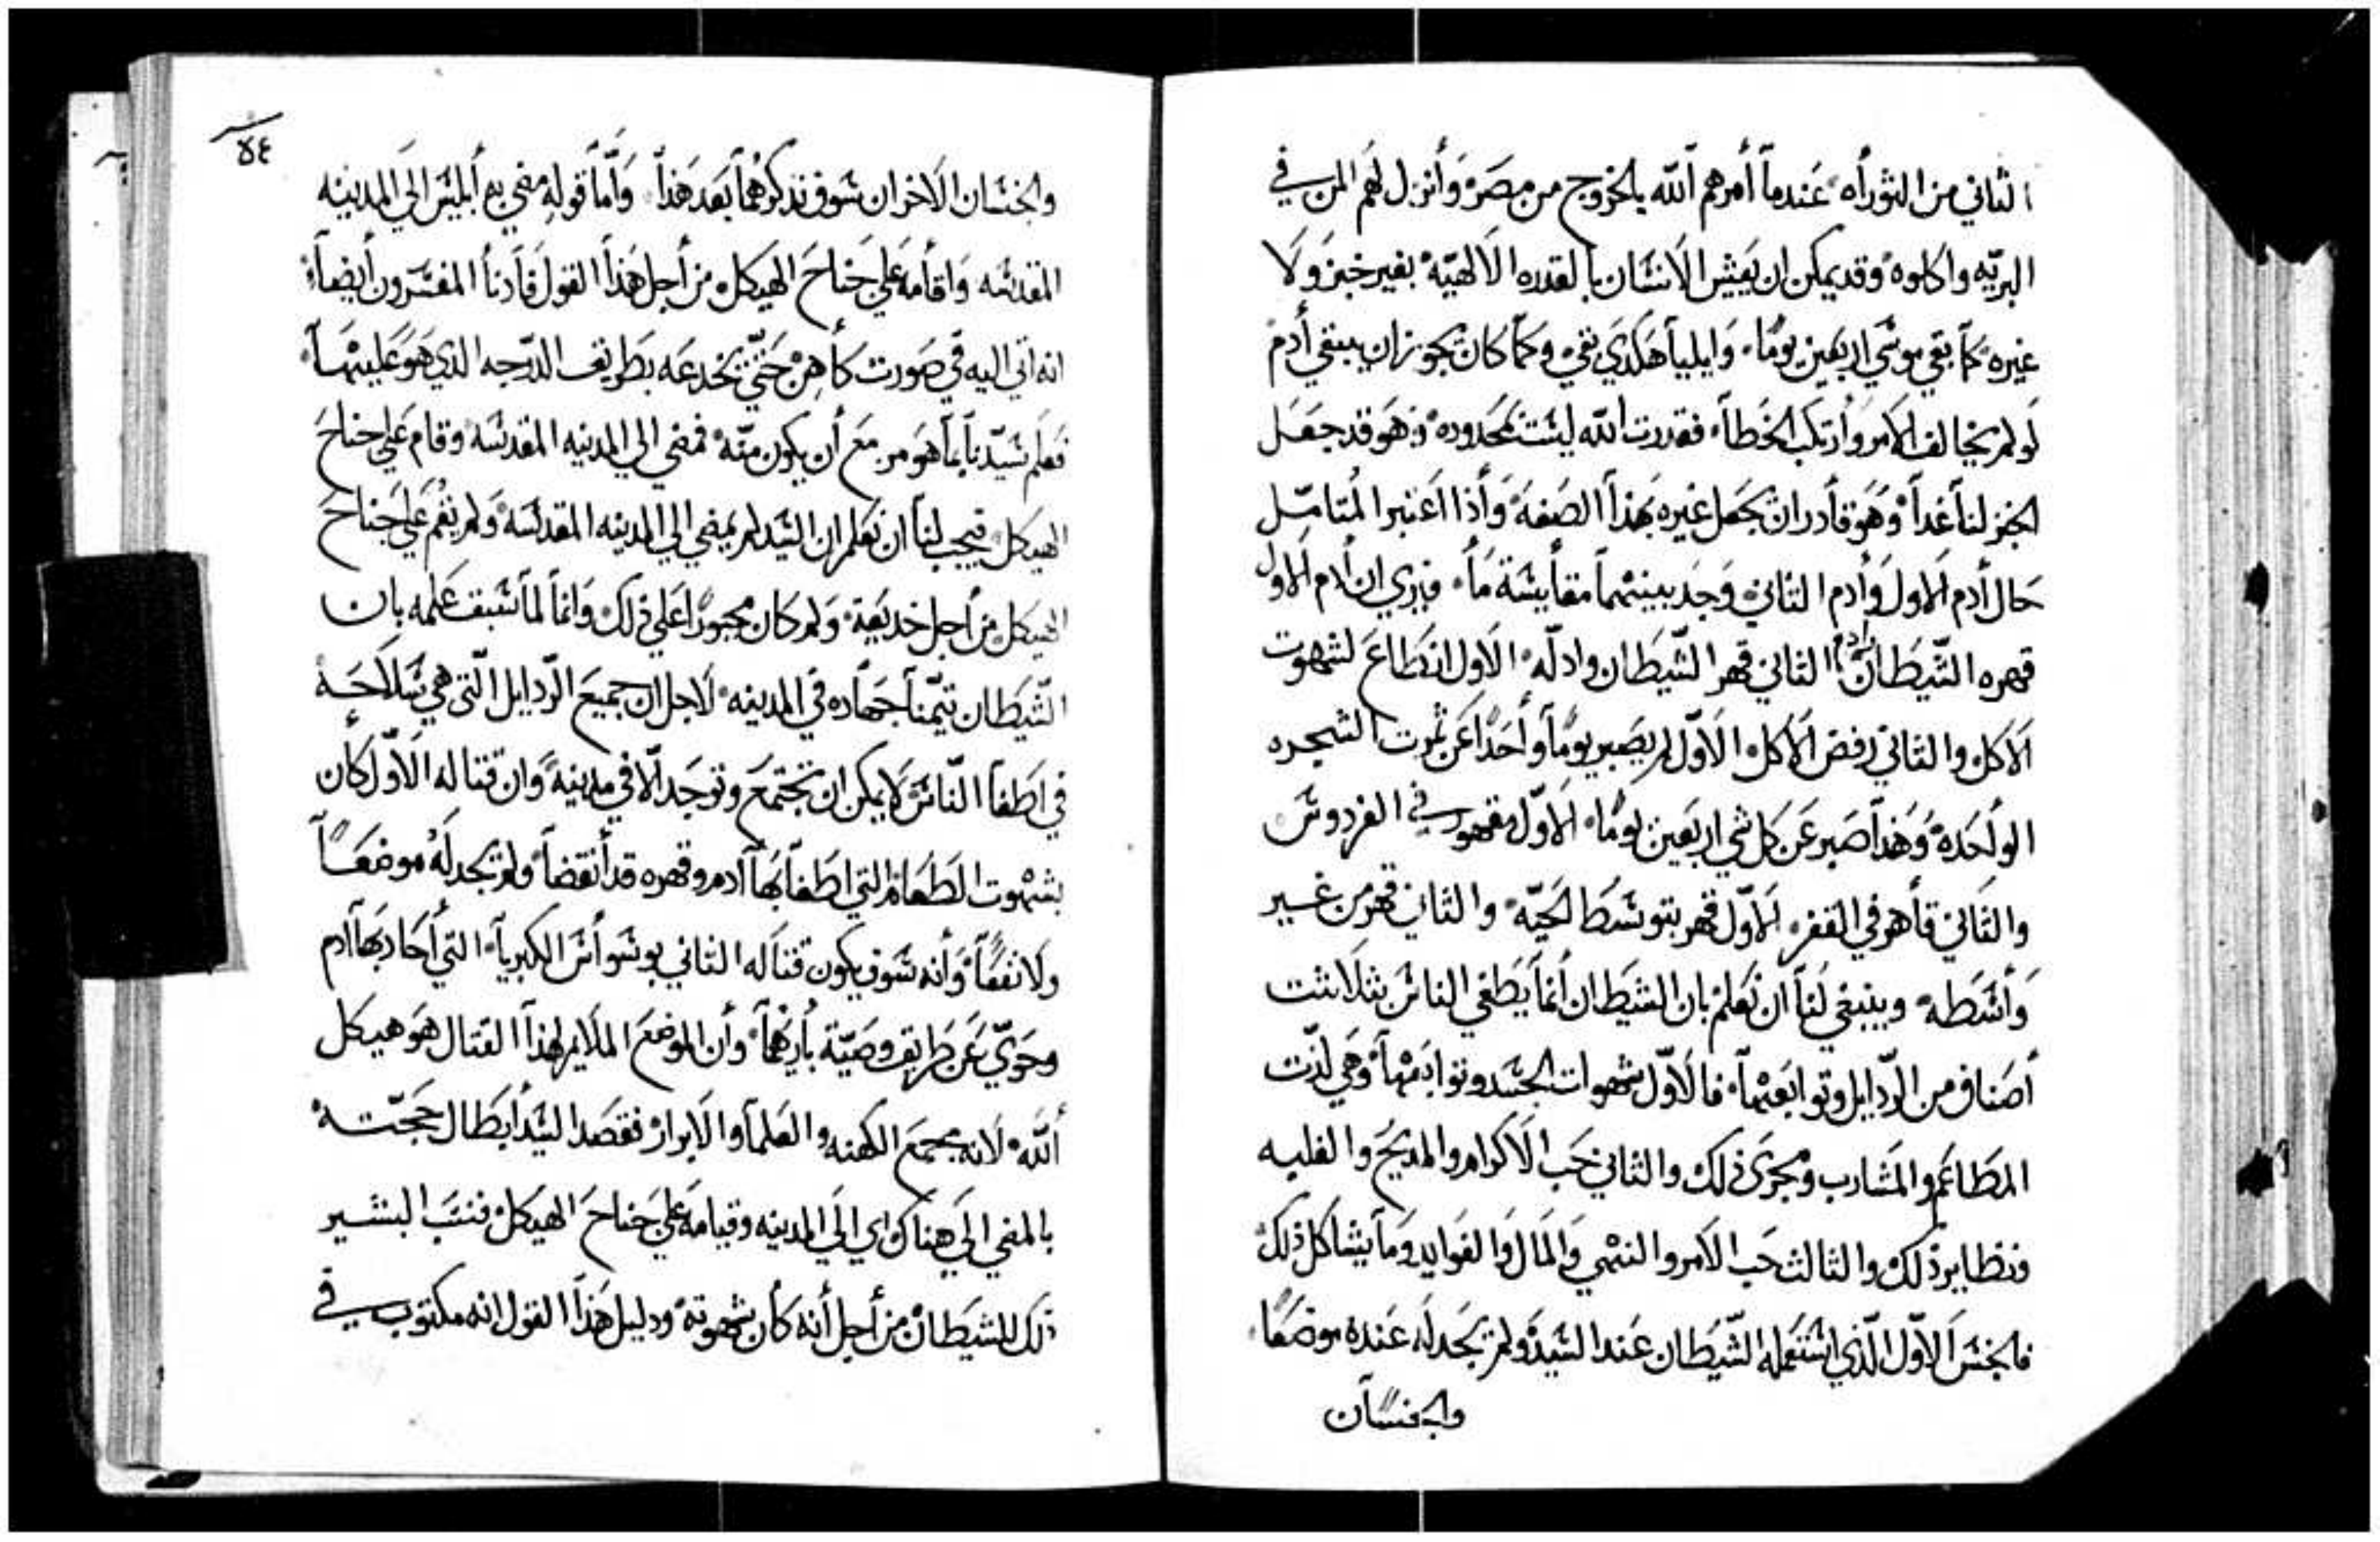 الثاني من التوراه عندما أمرهم الله بالخروج من مصر وأنزل لهم المن في
البريّه واكلوه وقد يمكن ان يعيش الانشان بالقدره الالهيّه بغير خبز ولا
غيره كما بقي موشي اربعين يومًا وايليا هكدي بقي وكما كان يجوز ان يبقي أدم
لو لم يخالف الامر وأرتكب الخطا فقدرت الله ليشت بمحدوده وهو قد جعل
الخبز لنا غدآ وهو قادر ان يجعل غيره بهذا الصفه وأذا اعتبر المتامّل
حال أدم الاول وأدم الثاني وجد بينهما مقايشة ما فيري ان أدم الاول
قهره الشيطان وادم الثاني قهر الشيطان وادلّه الاول انطاع لشهوت
الاكل والثاني رفض الاكل الاوّل لم يصبر يومًا وأحدًا عن ثمرت الشجره
الوأحده وهذا صبر عن كل شي اربعين يومًا الاوّل مقهور في الفردوش
والثاني قاهر في القفر الاوّل قهر بتوشط الحيّه والثاني قهر من غير
وأشطه وينبغي لنا ان نعلم بان الشيطان أنما يطغي الناش بثلاثت
أصناف من الردايل وتوابعهما فالاوّل شهوات الجشد وتوابعها وهي لذّت
المطاعم والمشارب ومجري ذلك والثاني حب الاكرام والمديح والغلبه
ونظاير ذلك والثالث حب الامر والنهي والمال والفوايد وما يشاكل ذلك
فالجنش الاوّل الّذي اشتعمله الشيطان عند الشيد ولم يجد له عنده موضعًا
والجنشان
٥٤
والجنشان الاخران شوف نذكرهما بعد هذا وأمّا قوله مضي به أبليش الي المدينه
المقدشه واقامه علي جناح الهيكل من أجل هذا القول فادنا المفشرون أيضا
انه اتي اليه في صورت كاهن حتّي يخدعه بطريق الدرجه الذي هو عليها
فعلم شيّدنا بما هو مزمع أن يكون منّه فمضي الي المدينه المقدشه وقام علي جناح
الهيكل فيجب لنا ان نعلم ان الشيد لم يمضي الي المدينه المقدشه ولم يقم علي جناح
الهيكل من أجل خديعة ولم كان مجبورًا علي ذلك وانما لما شبق علمه بان
الشيطان تيمّنا جهاده في المدينه لاجل ان جميع الردايل الّتي هي شلاحه
في اطغا النّاش لا يمكن ان تجتمع وتوجد الّا في مدينة وان قتاله الاوّل كان
بشهوت الطعام التي اطغا بها آدم وقهره قد أنقضا ولم يجد له موضعًا
ولا نفعًا وأنه شوف يكون قتاله الثاني بوشواش الكبريا التي أحارب بها آدم
وحوّي عن طريق وصيّة باريهما وأن الموضع الملايم لهذا القتال هو هيكل
اللّه لانه مجمع الكهنه والعلما والابرار فقصد الشيد أبطال حجّته
بالمضي الي هناك اي الي المدينه وقيامه علي جناح الهيكل فنسب البشير
ذلك للشيطان من أجل أنه كان بشهوته ودليل هذا القول انه مكتوب في